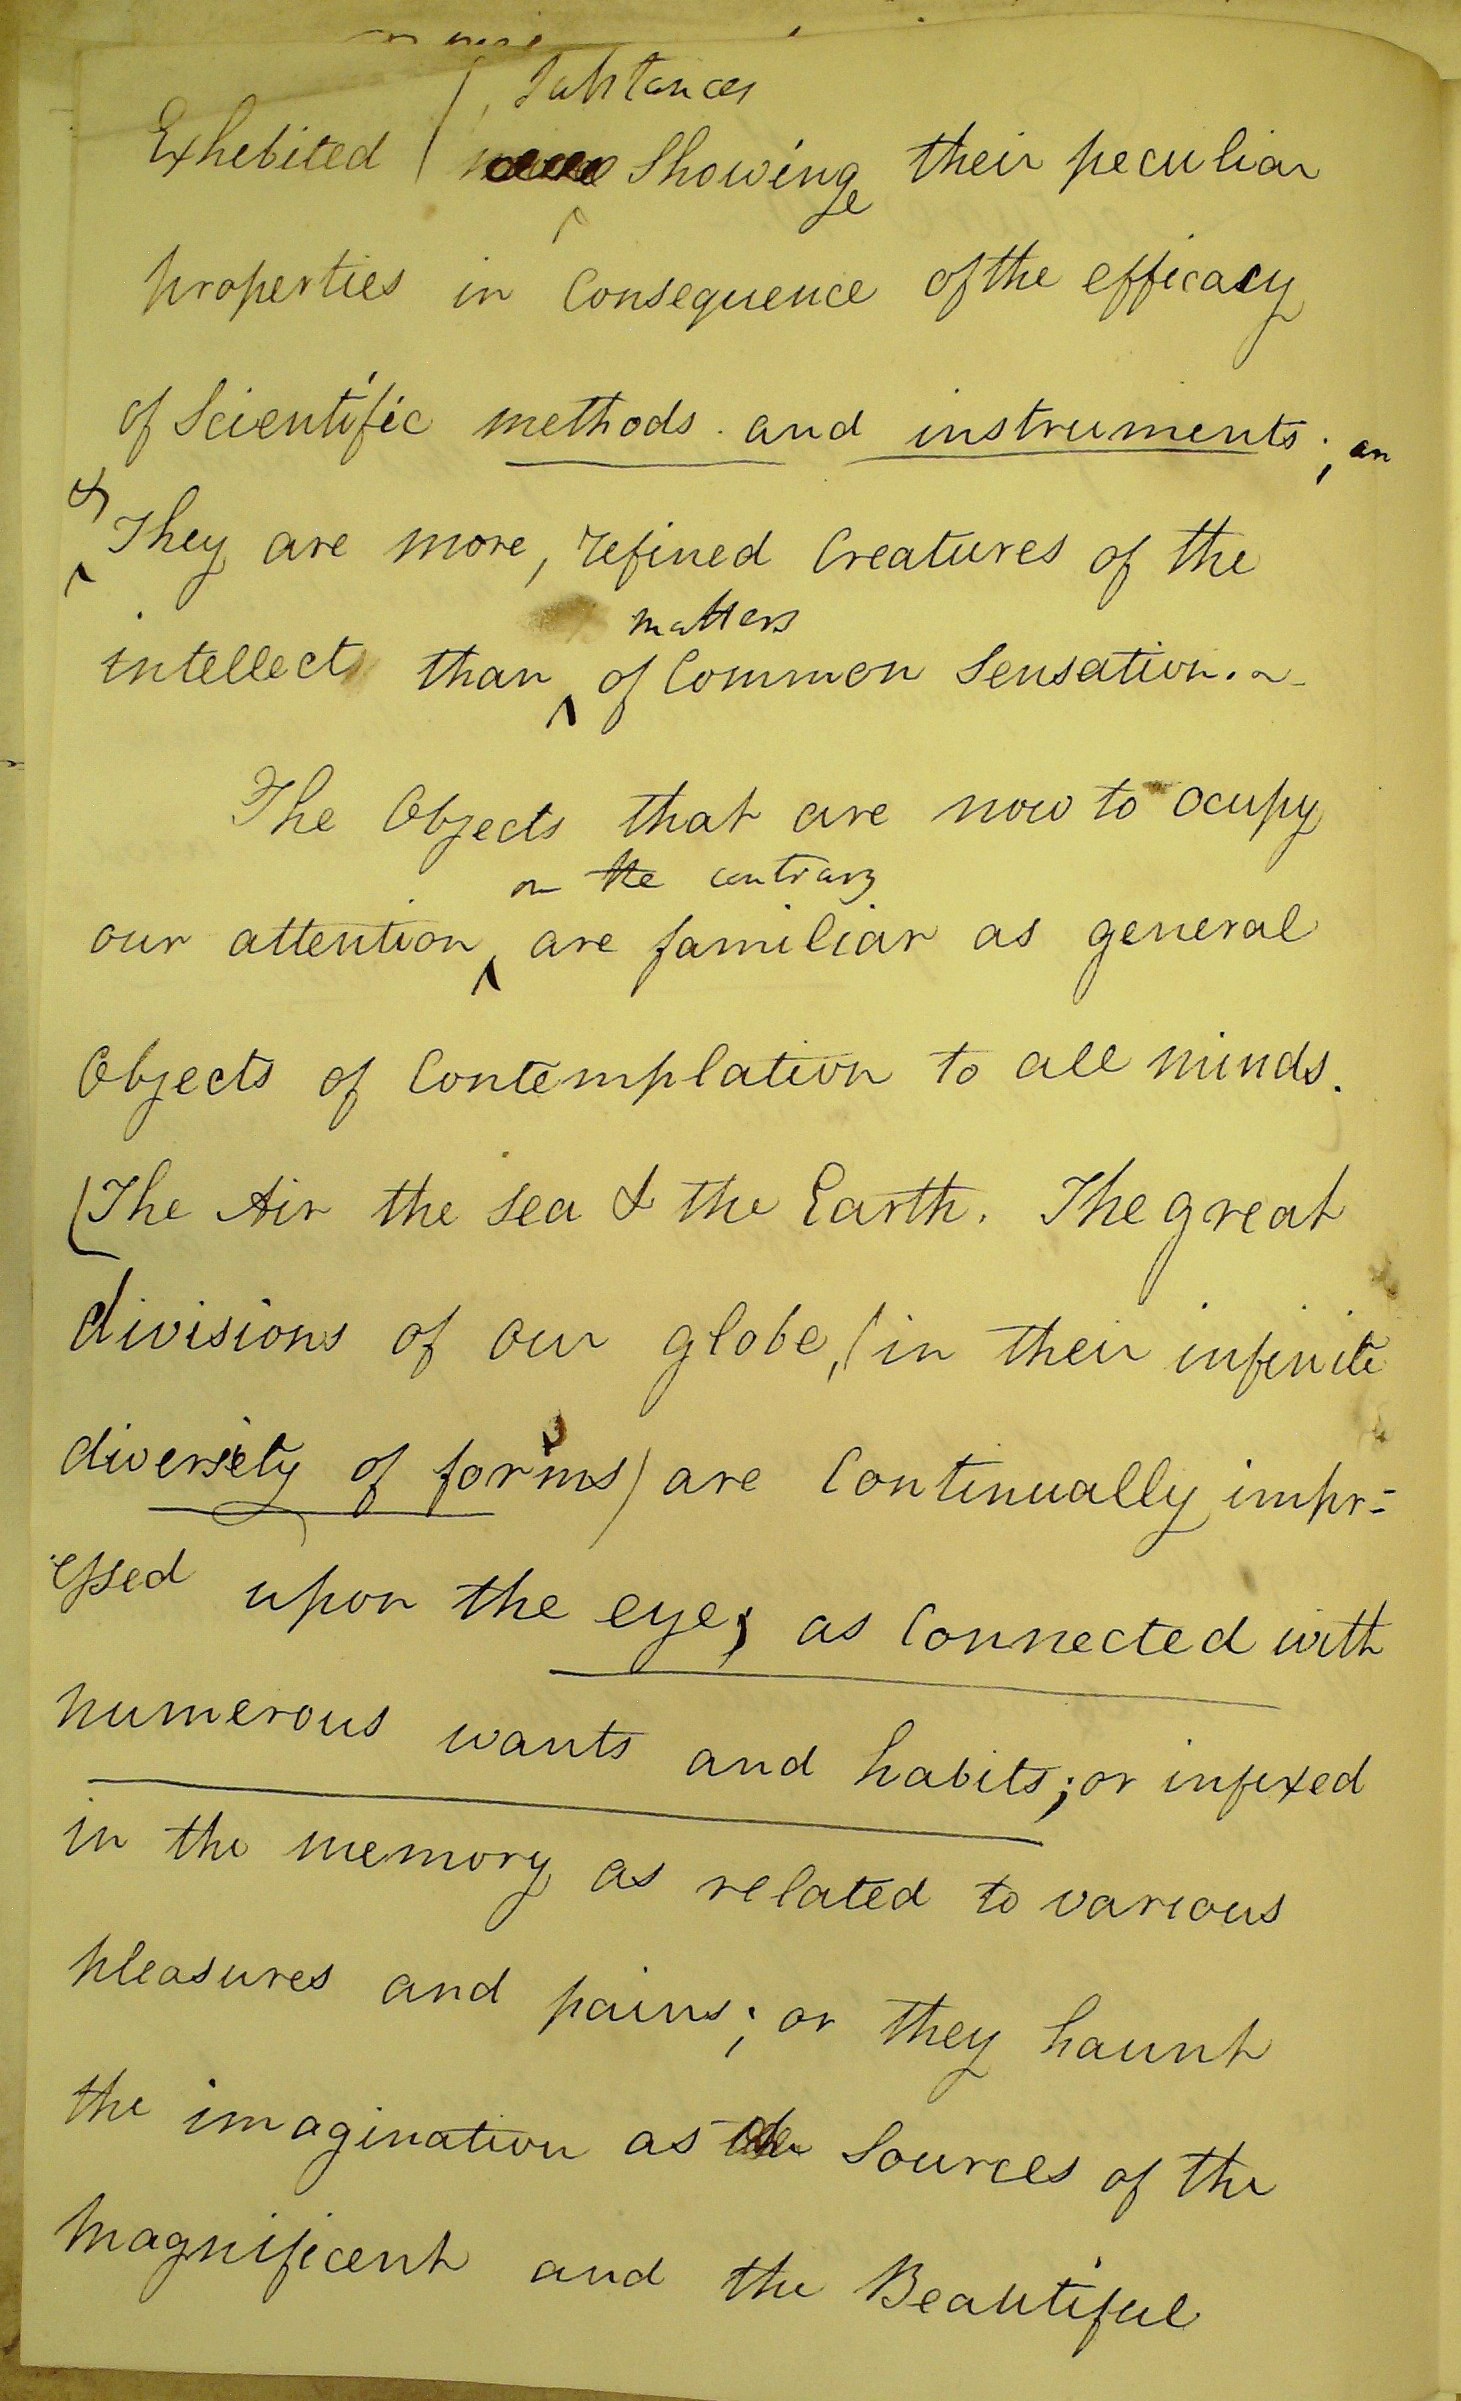 Substances
Exhebited ( Showing their peculiar
properties in Consequence of the efficacy
of Scientific methods and instruments; an
& They are more, refined Creatures of the
matters
intellect than of Common Sensation.
The Objects that are now to ocupy
on the contrary
our attention, are familiar as general
Objects of Contemplation to all minds.
(The Air the sea & the Earth. The great
divisions of our globe, (in their infinite
diversity of forms) are Continually impr=
essed upon the eye; as Connected with
numerous wants and habits; or infixed
in the memory as related to various
pleasures and pains; or they haunt
the imagination as Sources of the
Magnificent and the Beautiful